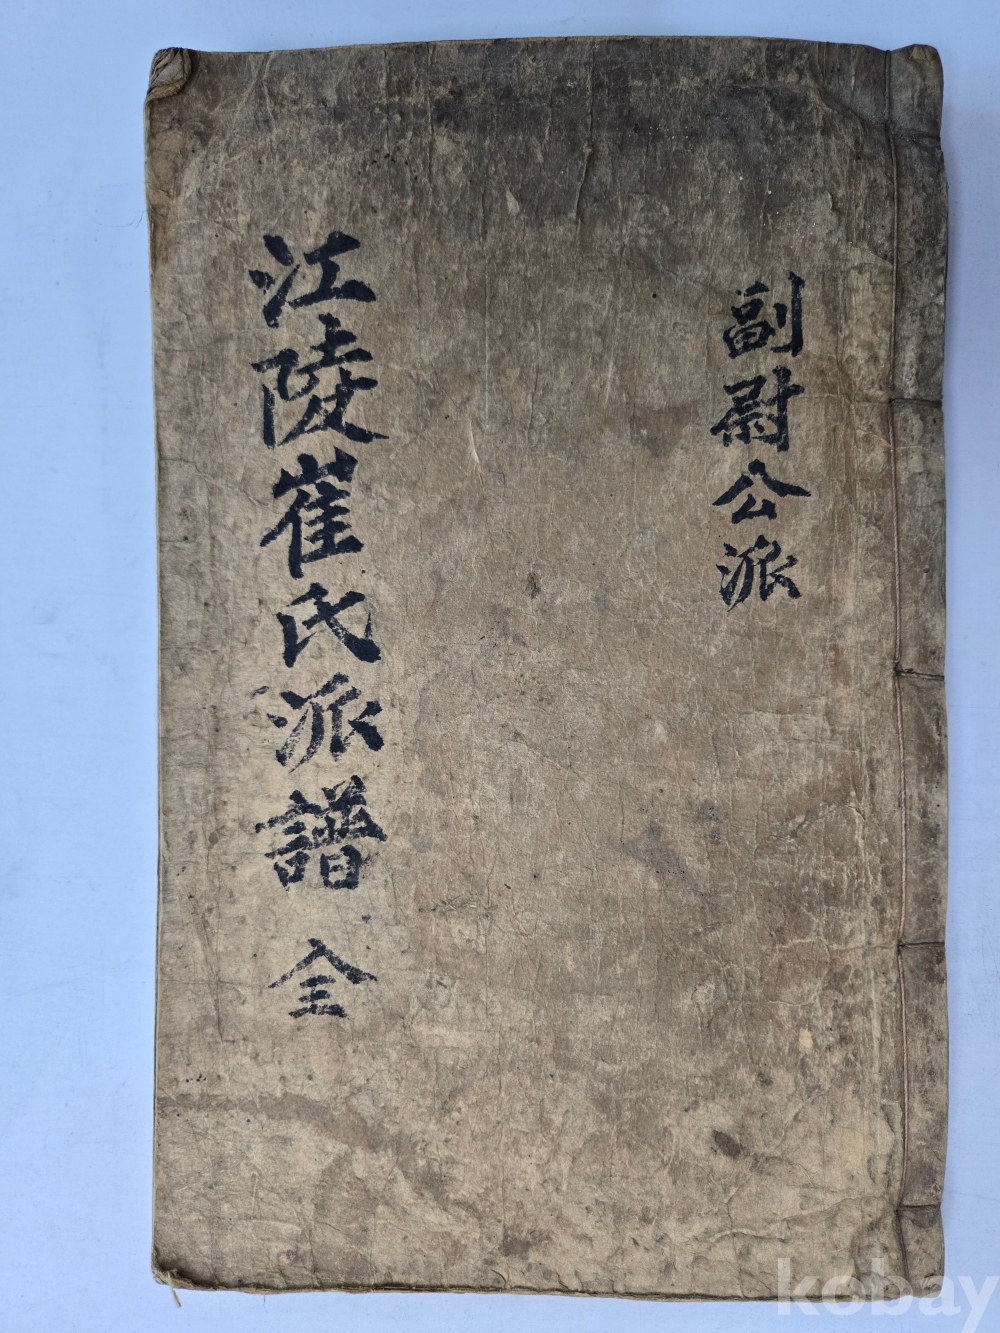 副尉公派
江陵崔氏派譜 全
kobay